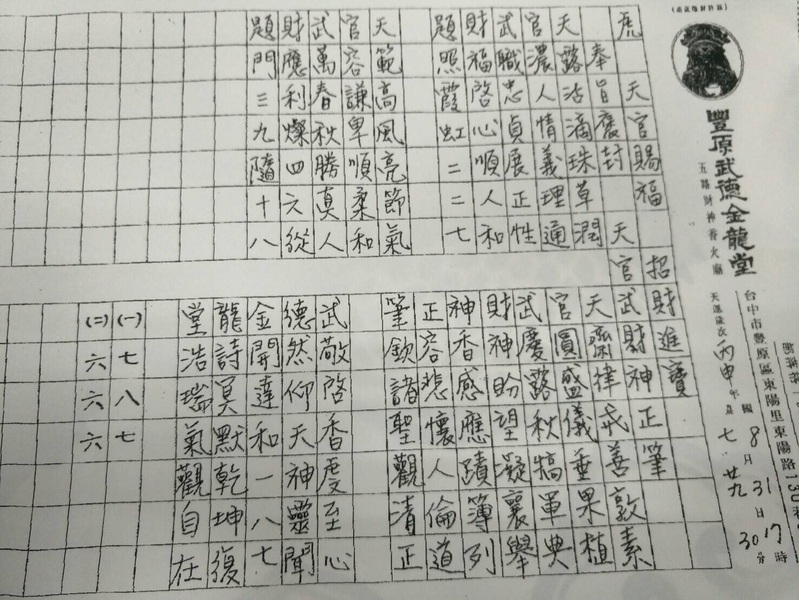 豐原武德金龍堂
五路財神香火廟
台中市豐原區東陽里東陽路130
天運歲次丙申年
國8月31日17時30分
七 廿九
虎
天官賜福
奉旨褒封
天官
招財進寶
武財神正筆
天露沾滴珠草潤
官濃人情義理通
武職忠貞展正性
財福啓心順人和
題照霞虹二二七
天範高風亮節氣
官容謙卑順柔和
武萬春秋勝真人
財應利燦四六從
題門三九隨十八
天齋律戒善敦素
官圓盛儀垂果植
武慶露秋犒軍典
財神盼望凝襄舉
神香感應蹟簿列
正容悲懷人倫道
筆欽諸聖觀清正
武敬啓香度至心
德然仰天神靈聞
金開達和一八七
龍詩冥默乾坤復
堂浩瑞氣觀自在
(一)七八七
(二)六六六